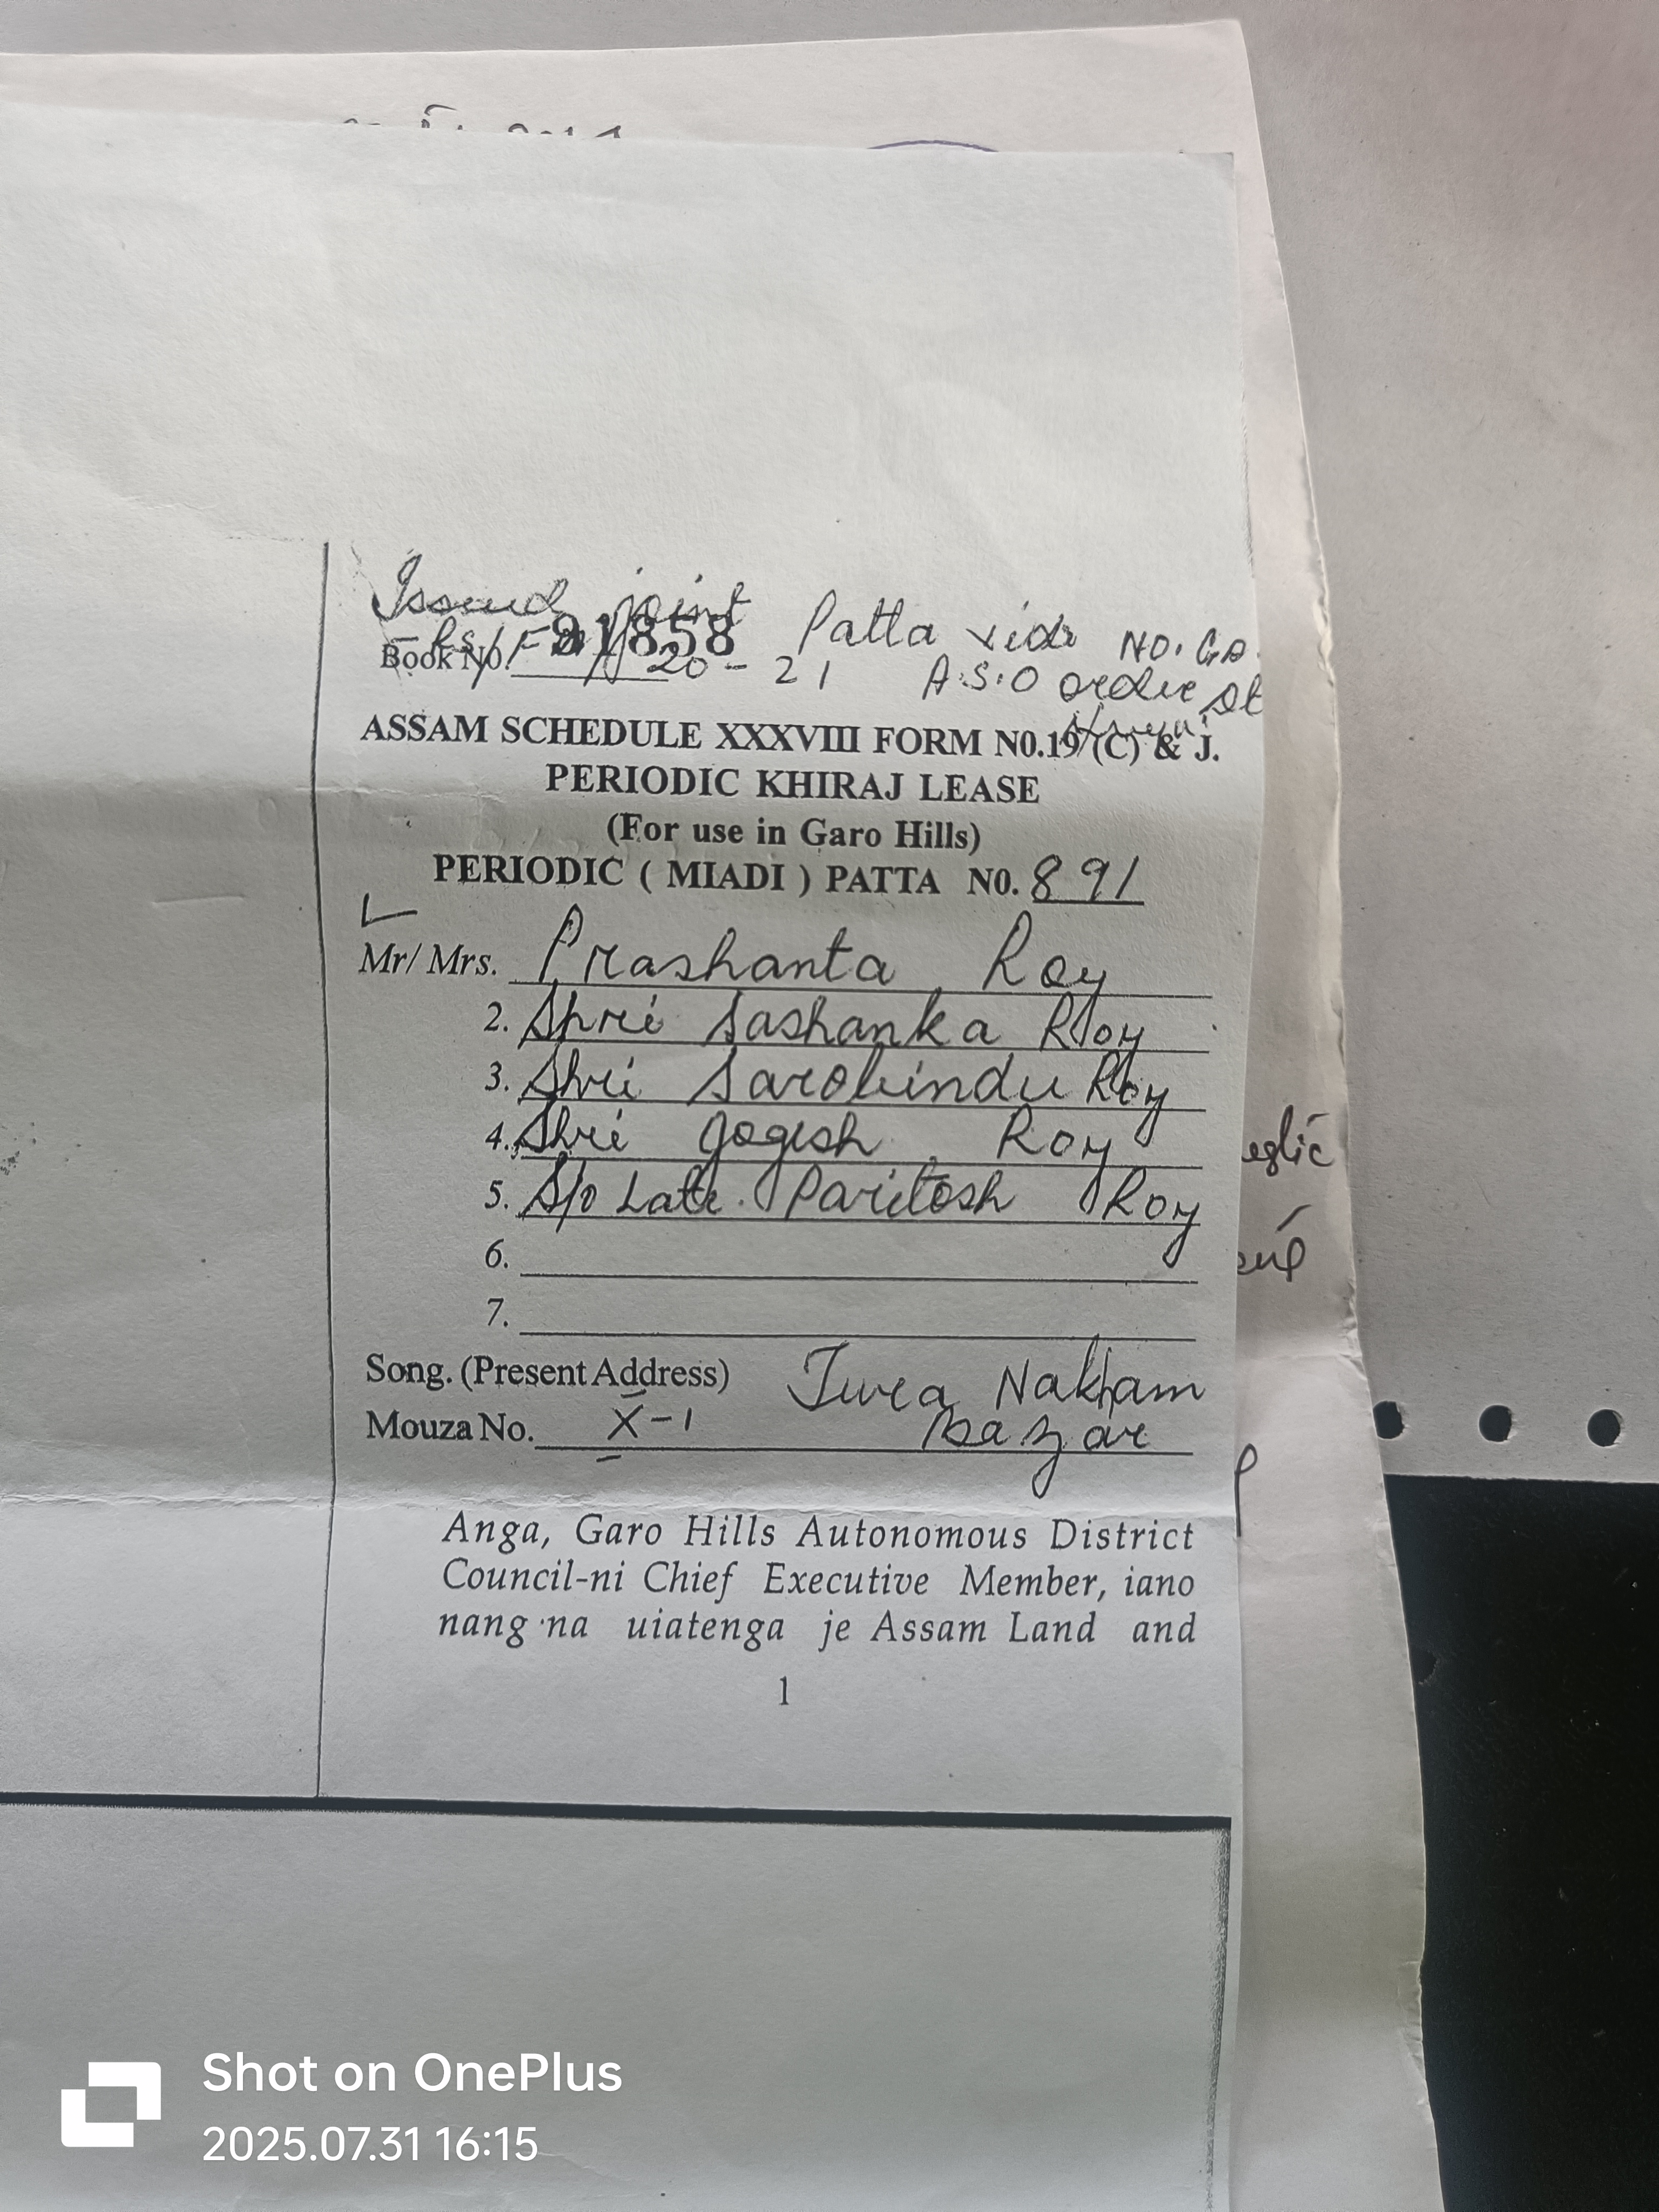 Issued joint Patta vide NO. GA.
Book No. 91858 20-21 A.S.O order dt
ASSAM SCHEDULE XXXVIII FORM N0.19 (C) & J.
PERIODIC KHIRAJ LEASE
(For use in Garo Hills)
PERIODIC ( MIADI ) PATTA N0. 891
Mr/ Mrs. Prashanta Roy
2. Shri Sashanka Roy
3. Shri Sarobindu Roy
4. Shri Jogesh Roy
5. S/o Late. Paritosh Roy
6.
7.
Song. (Present Address) Tura Nakham
Mouza No. X-1 Bazar
Anga, Garo Hills Autonomous District
Council-ni Chief Executive Member, iano
nang·na uiatenga je Assam Land and
1
Shot on OnePlus
2025.07.31 16:15